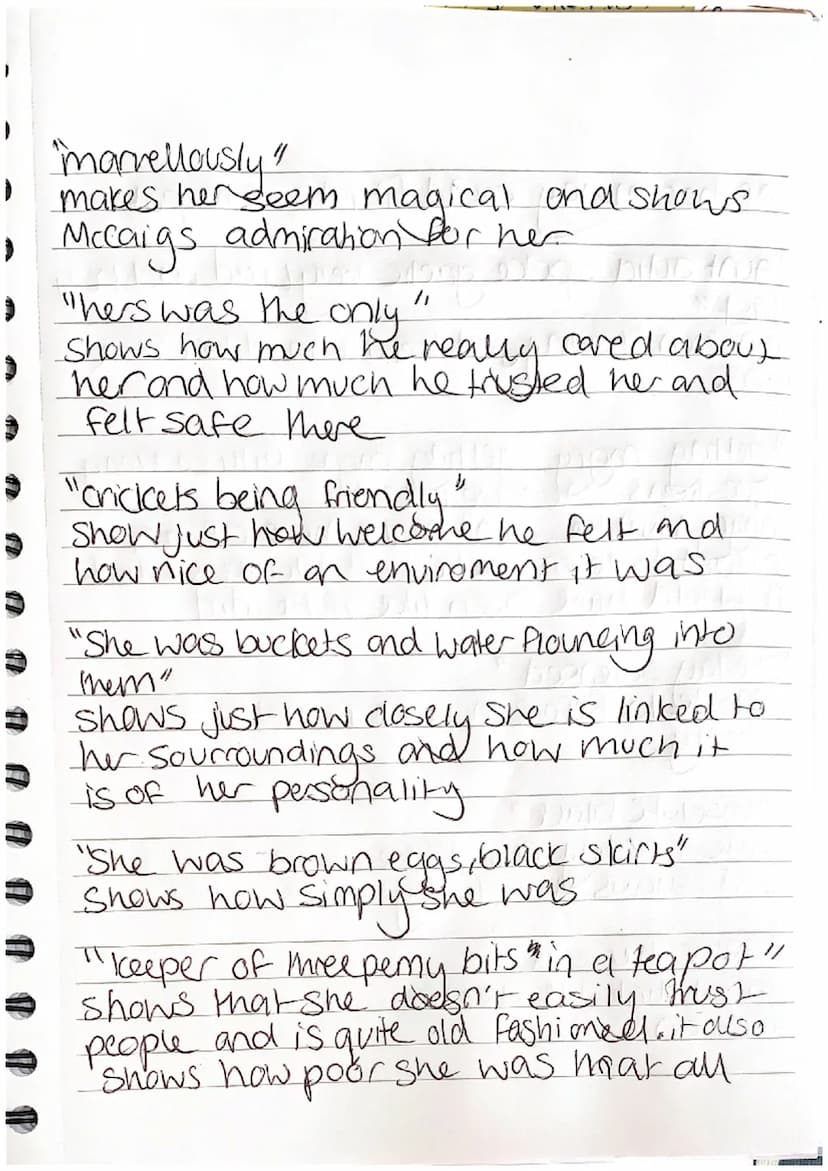 "marvellously"
makes her seem magical and shows
McCaigs admiration for her
"hers was the only"
shows how much he really cared about
her and how much he trusted her and
felt safe there
"crickets being friendly"
Show just how welcome he felt and
how nice of an enviroment it was
"She was buckets and water flouncing into
them"
shows just how closely she is linked to
her sourroundings and how much it
is of her personality
"She was brown eggs, black skirts"
Shows how simply she was
"keeper of threepenny bits" in a teapot"
shows that she doesn't easily trust
people and is quite old fashioned. it also
shows how poor she was all